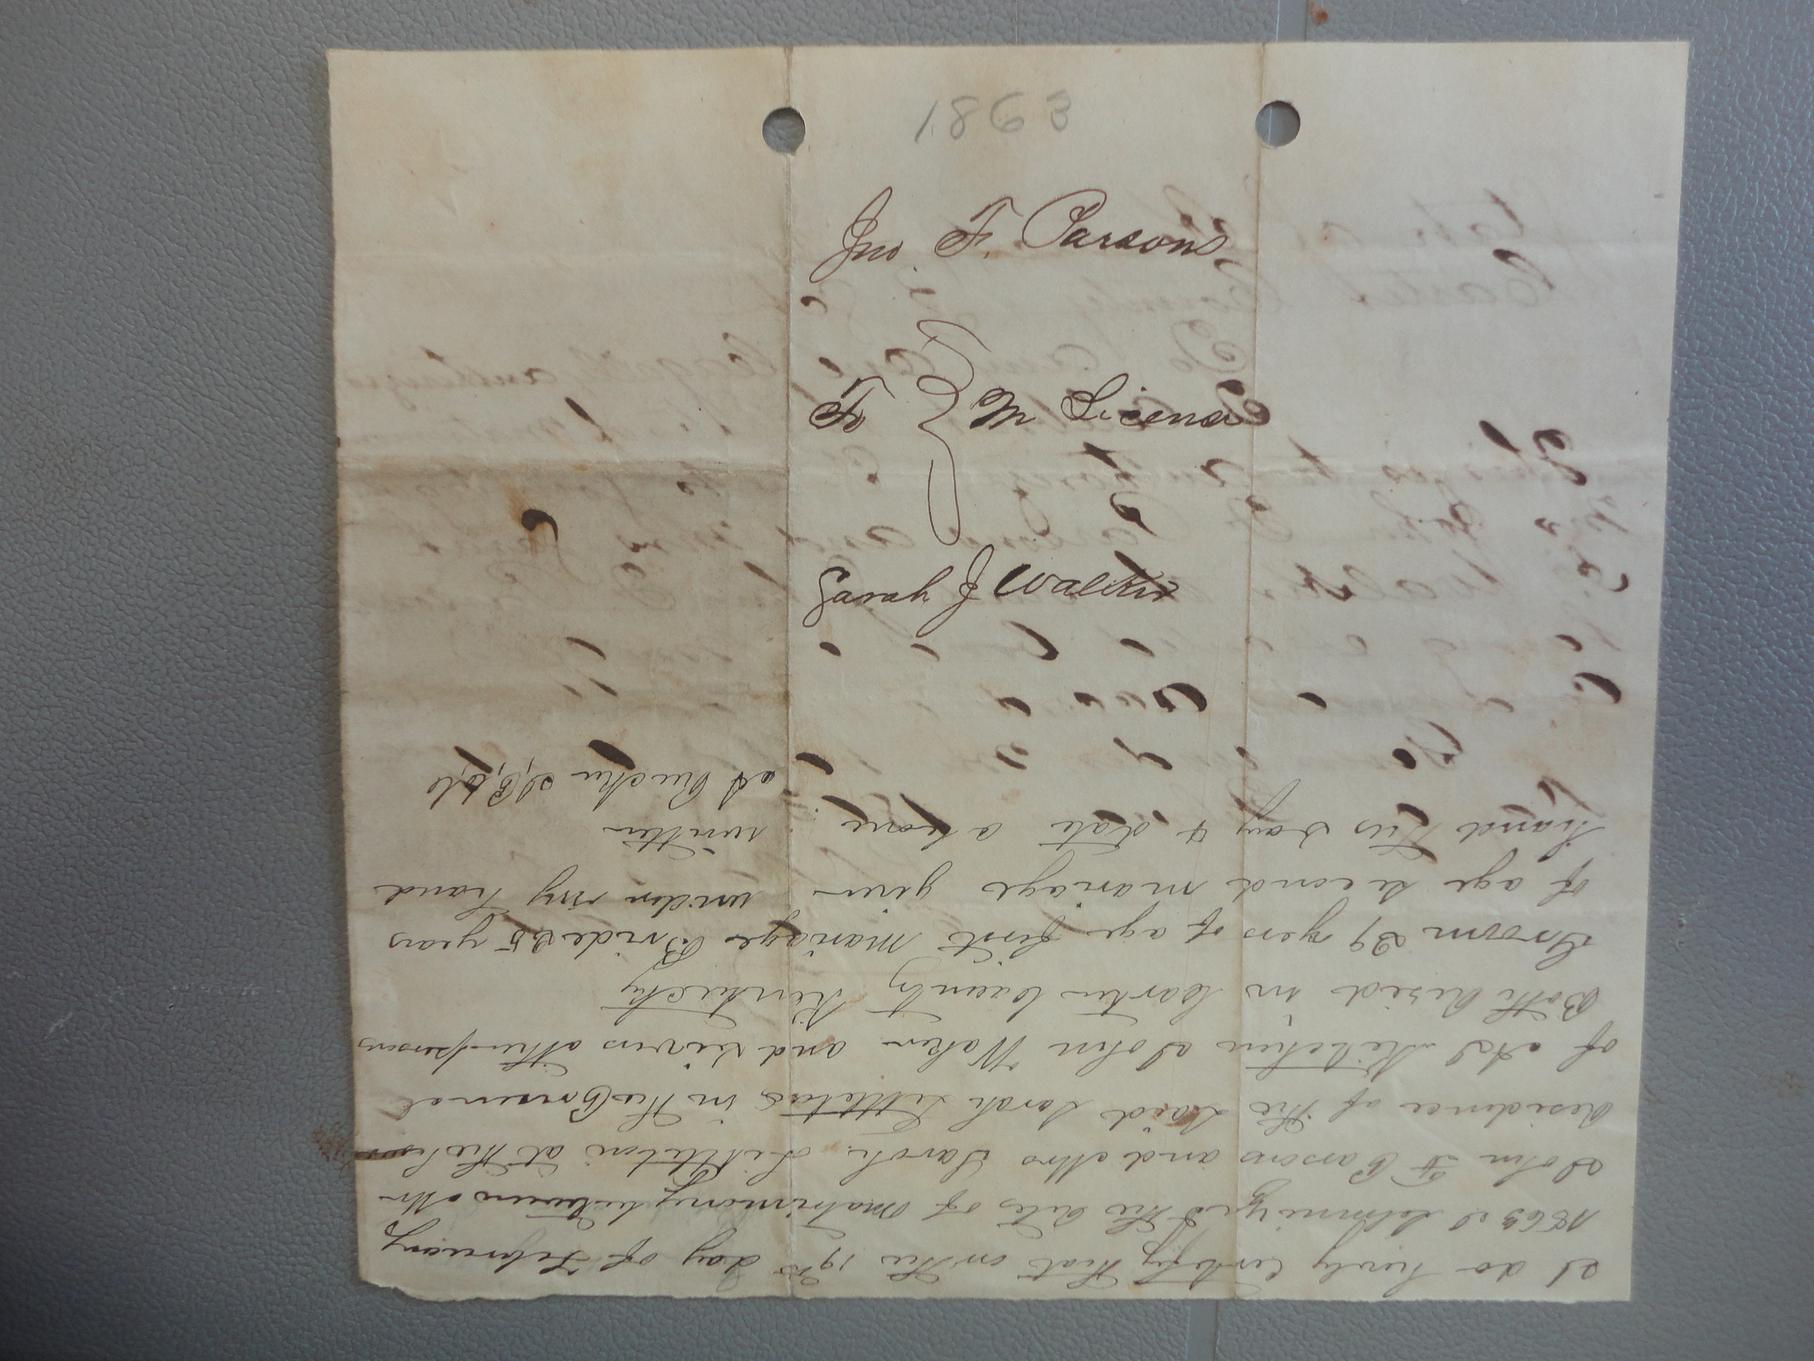 1863
Jno. F. Parsons
To } M License
Sarah J Walker
I do hirely Certify that on the 19th day of February
1863 I solmniyed the rits of matrimony between Mr
John F Parsons and Mrs Sarah Littleton at the
Residence of the Said Sarah Littleton in the Presence
of John and others persons
Both Resid in Carter County Kentucky
Groom 29 yers of age first mariage Bride 25 years
of age Second mariage given under my hand
hand this day & date above written